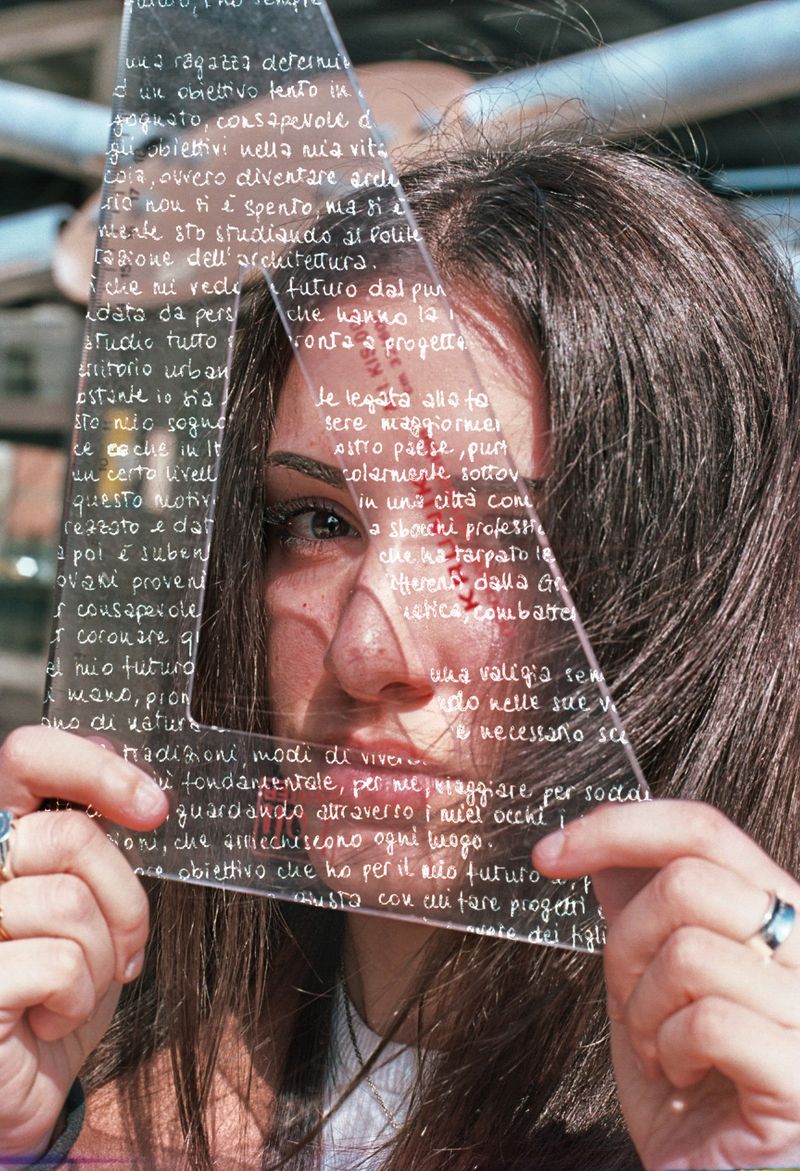 futuro, ho sempre
una ragazza determi
d un obiettivo tento in
gognato, consapevole d
gli obiettivi nella mia vita
cola, ovvero diventare arch
ria non si è spento ma si è
mente sto studiando al Polite
tazione dell'architettura.
che mi vede futuro dal pun
data da pers che hanno la
studio tutto pronta a progetta
erritorio urban
ostante io sia te legata alla fa
sto mio sogno sere maggiormen
ce che in It ostro paese, purt
un certo livell colarmente sottov
questo motiv in una città com
rezzato e dat a sbocchi professi
a poi è suben che ha tarpato le
ovani proveni ifferenti dalla Gr
r consapevole estica, combatter
r coronare q
el mio futuro una valigia sem
i mano, pron ndo nelle sue v
ano di natura è necessario sc
tradizioni modi di vivere
fondamentale, per me, viaggiare per soddi
guardando attraverso i miei occhi i
ioni, che arricchiscono ogni luogo.
obiettivo che ho per il mio futuro è, p
giusta con cui fare progetti
avere dei figli